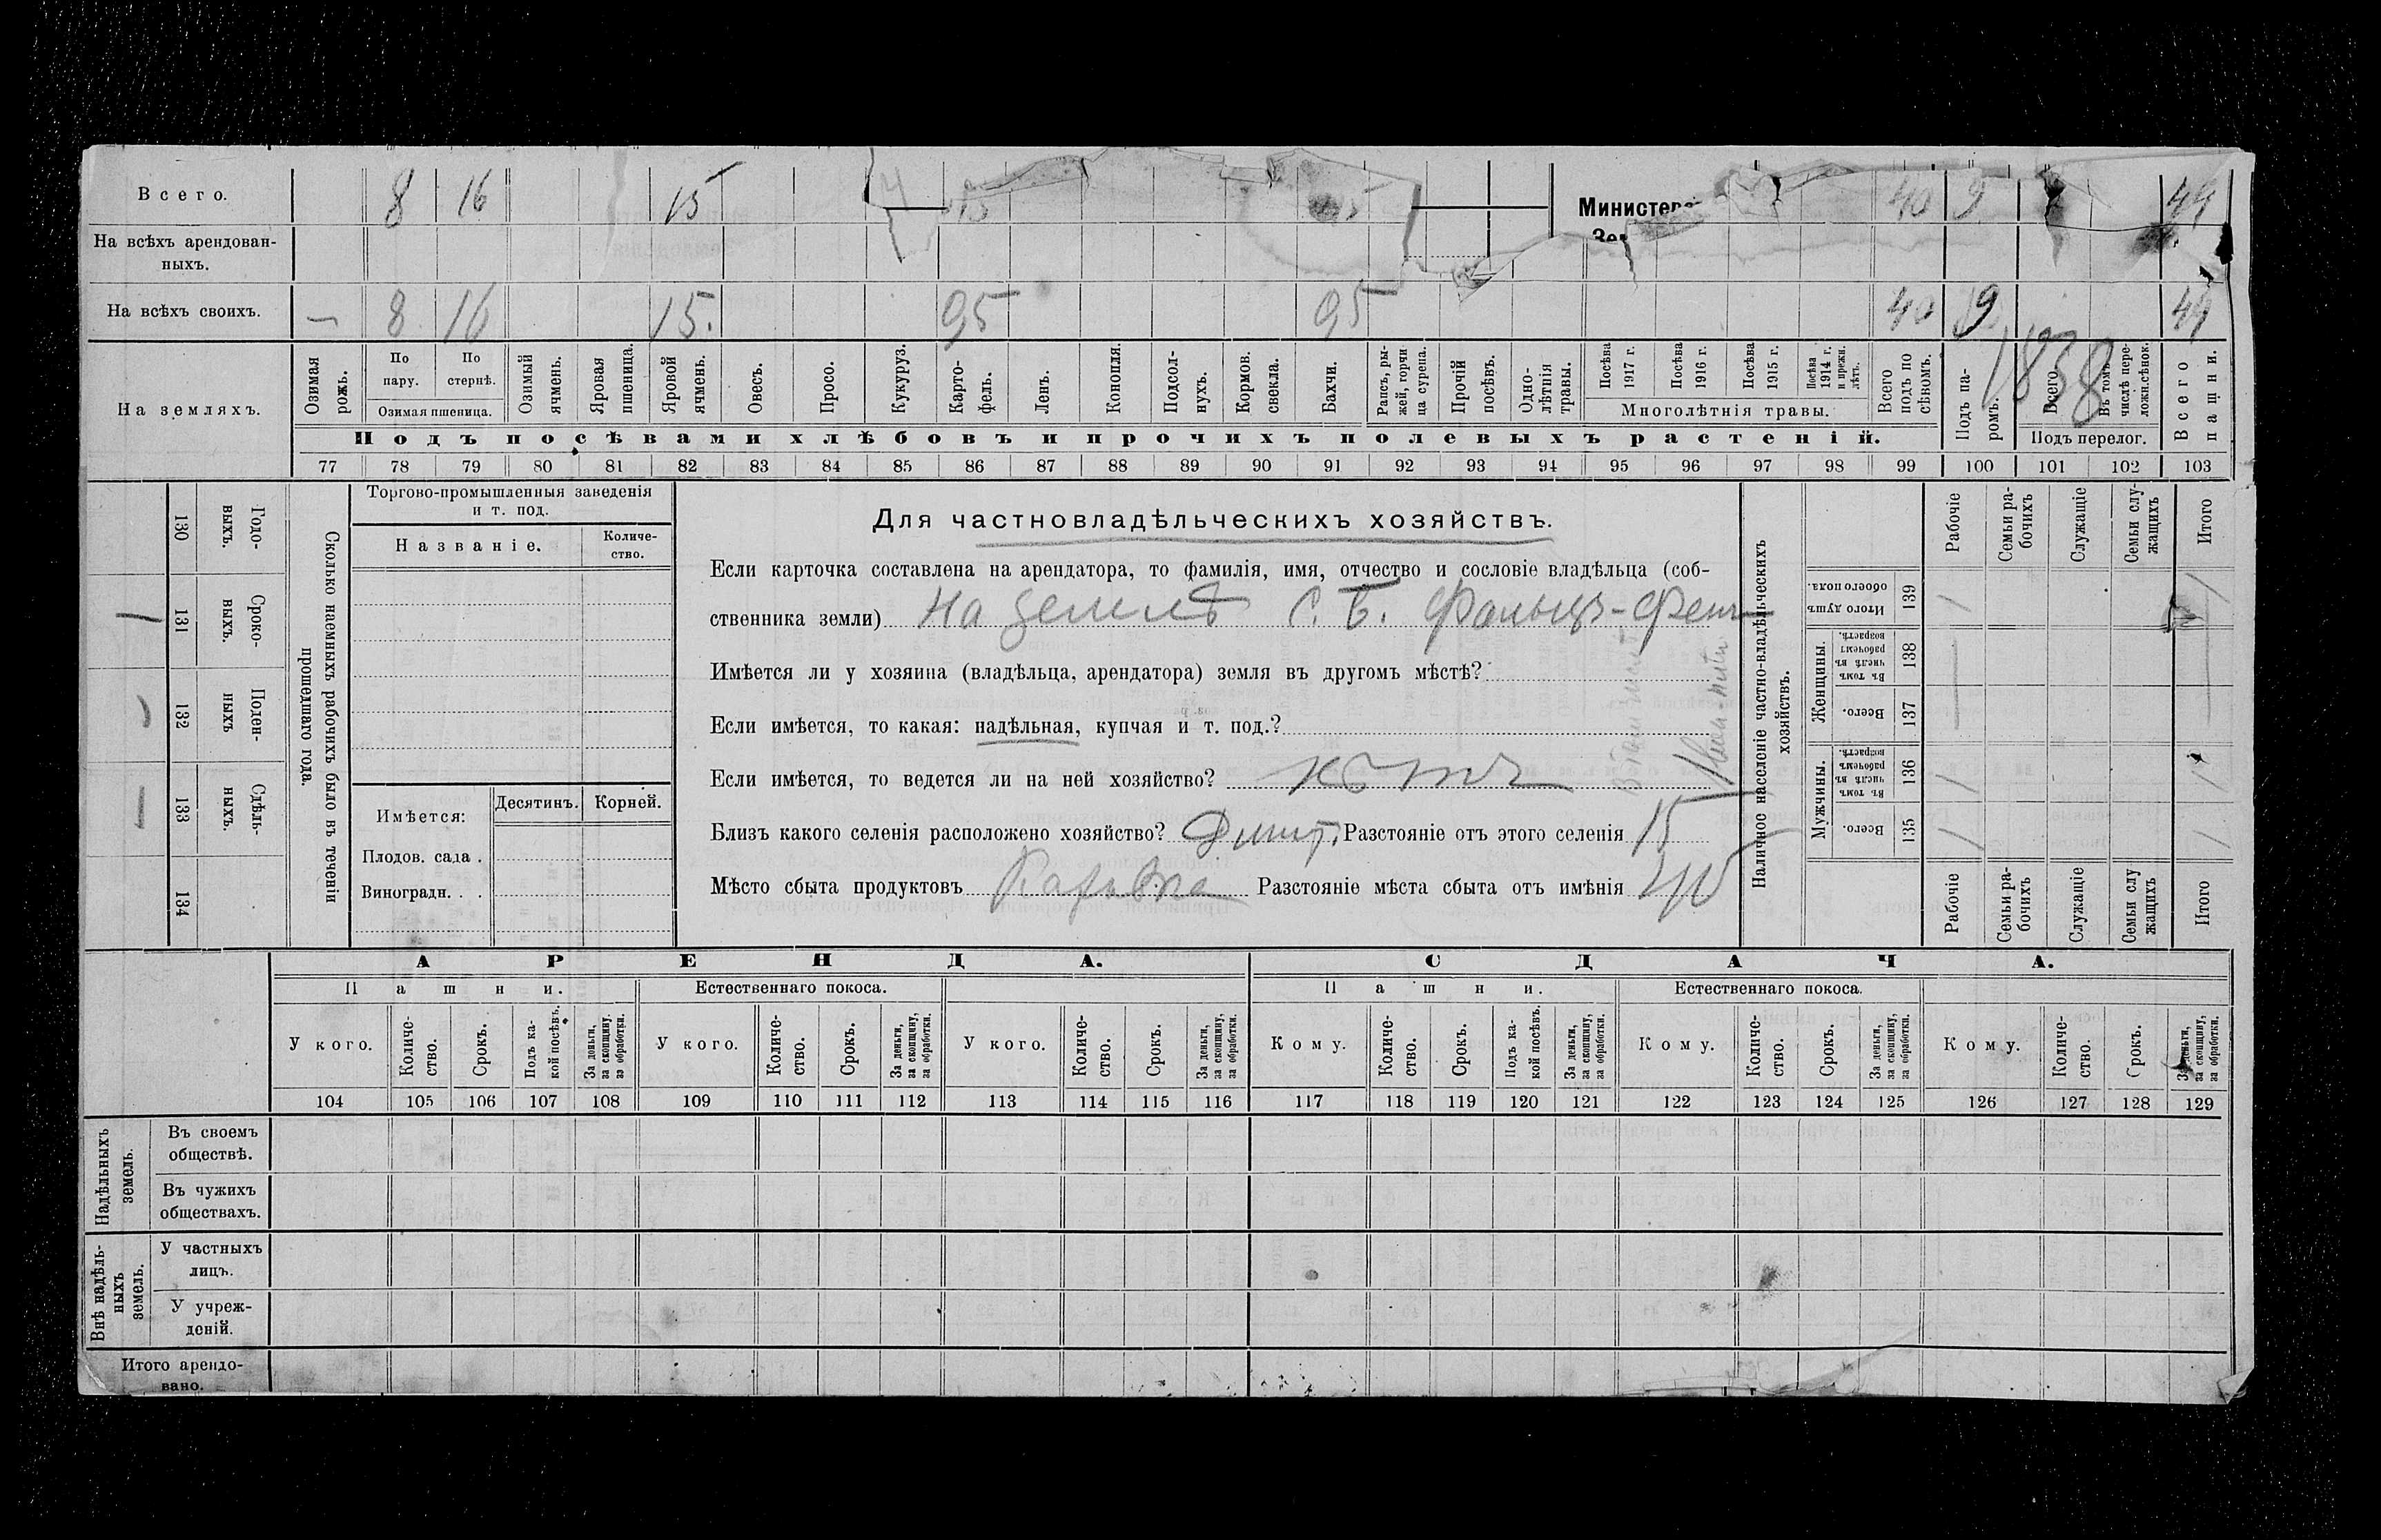 Всего. 8 16 15 40 9 44
Министерс
Зем
На всѣхъ арендован-
ныхъ.
На всѣхъ своихъ. — 8 16 15. 95 95 40 9 44
1838
На земляхъ.
Озимая рожь.
По пару.
По стернѣ.
Озимая пшеница.
Озимый ячмень.
Яровая пшеница.
Яровой ячмень.
Овесъ.
Просо.
Кукуруз.
Карто-
фель.
Ленъ.
Конопля.
Подсол-
нухъ.
Кормов. свекла.
Бахчи.
Рапсъ, ры-
жей, горчи
ца сурепа.
Прочій посѣвъ.
Одно-
лѣтнія
травы.
Посѣва 1917 г.
Посѣва 1916 г.
Посѣва 1915 г.
Посѣва 1914 г. и прежн. лѣтъ.
Многолѣтнія травы.
Всего подъ по
сѣвомъ.
Подъ па-
ромъ.
Всего.
Въ томъ
числѣ пере-
ложн.сѣнок.
Подъ перелог.
Всего пашни.
Подъ посѣвами хлѣбовъ и прочихъ полевыхъ растеній.
77 78 79 80 81 82 83 84 85 86 87 88 89 90 91 92 93 94 95 96 97 98 99 100 101 102 103
130 Годо-
выхъ.
131 Сроко-
выхъ.
132 Поден-
ныхъ
133 Сдѣль-
ныхъ.
134
Сколько наемныхъ рабочихъ было въ теченіи
прошедшаго года.
Торгово-промышленныя заведенія
и т. под.
Названіе.
Количе-
ство.
Имѣется:
Десятинъ. Корней.
Плодов. сада .
Виноградн. . .
Для частновладѣльческихъ хозяйствъ.
Если карточка составлена на арендатора, то фамилія, имя, отчество и сословіе владѣльца (соб-
ственника земли) На землѣ С. Б. Фальцъ-Фейн
Имѣется ли у хозяина (владѣльца, арендатора) земля въ другомъ мѣстѣ?
Если имѣется, то какая: надѣльная, купчая и т. под.?
Если имѣется, то ведется ли на ней хозяйство?
Близъ какого селенія расположено хозяйство? Дмит. Разстояніе отъ этого селенія 15
Мѣсто сбыта продуктовъ Каховка Разстояніе мѣста сбыта отъ имѣнія
Наличное населеніе частно-владѣльческихъ
хозяйствъ.
Рабочіе
Семьи ра-
бочихъ
Служащіе
Семьи слу-
жащихъ
Итого
Итого душъ
обоего пола.
139
Женщины.
Въ томъ
числѣ въ
рабочемъ
возрастѣ.
138
Всего.
137
Мужчины.
Въ томъ
числѣ въ
рабочемъ
возрастѣ.
136
Всего.
135
Рабочіе
Семьи ра-
бочихъ
Служащіе
Семьи слу
жащихъ
Итого
АРЕНДА. СДАЧА.
Пашни. Естественнаго покоса. Пашни. Естественнаго покоса.
У кого.
Количе-
ство.
Срокъ.
Подъ ка-
кой посѣвъ.
За деньги,
за скопщину,
за обработки.
У кого.
Количе-
ство.
Срокъ.
За деньги,
за скопщину,
за обработки.
У кого.
Количе-
ство.
Срокъ.
За деньги,
за скопщину,
за обработки.
Кому.
Количе-
ство.
Срокъ.
Подъ ка-
кой посѣвъ.
За деньги,
за скопщину,
за обработки.
Кому.
Количе-
ство.
Срокъ.
За деньги,
за скопщину,
за обработки.
Кому.
Количе-
ство.
Срокъ.
За деньги,
за скопщину,
за обработки.
104 105 106 107 108 109 110 111 112 113 114 115 116 117 118 119 120 121 122 123 124 125 126 127 128 129
Надѣльныхъ
земель.
Въ своемъ
обществѣ.
Въ чужихъ
обществахъ.
Внѣ надѣль-
ныхъ
земель.
У частныхъ
лицъ.
У учреж-
деній.
Итого арендо-
вано.